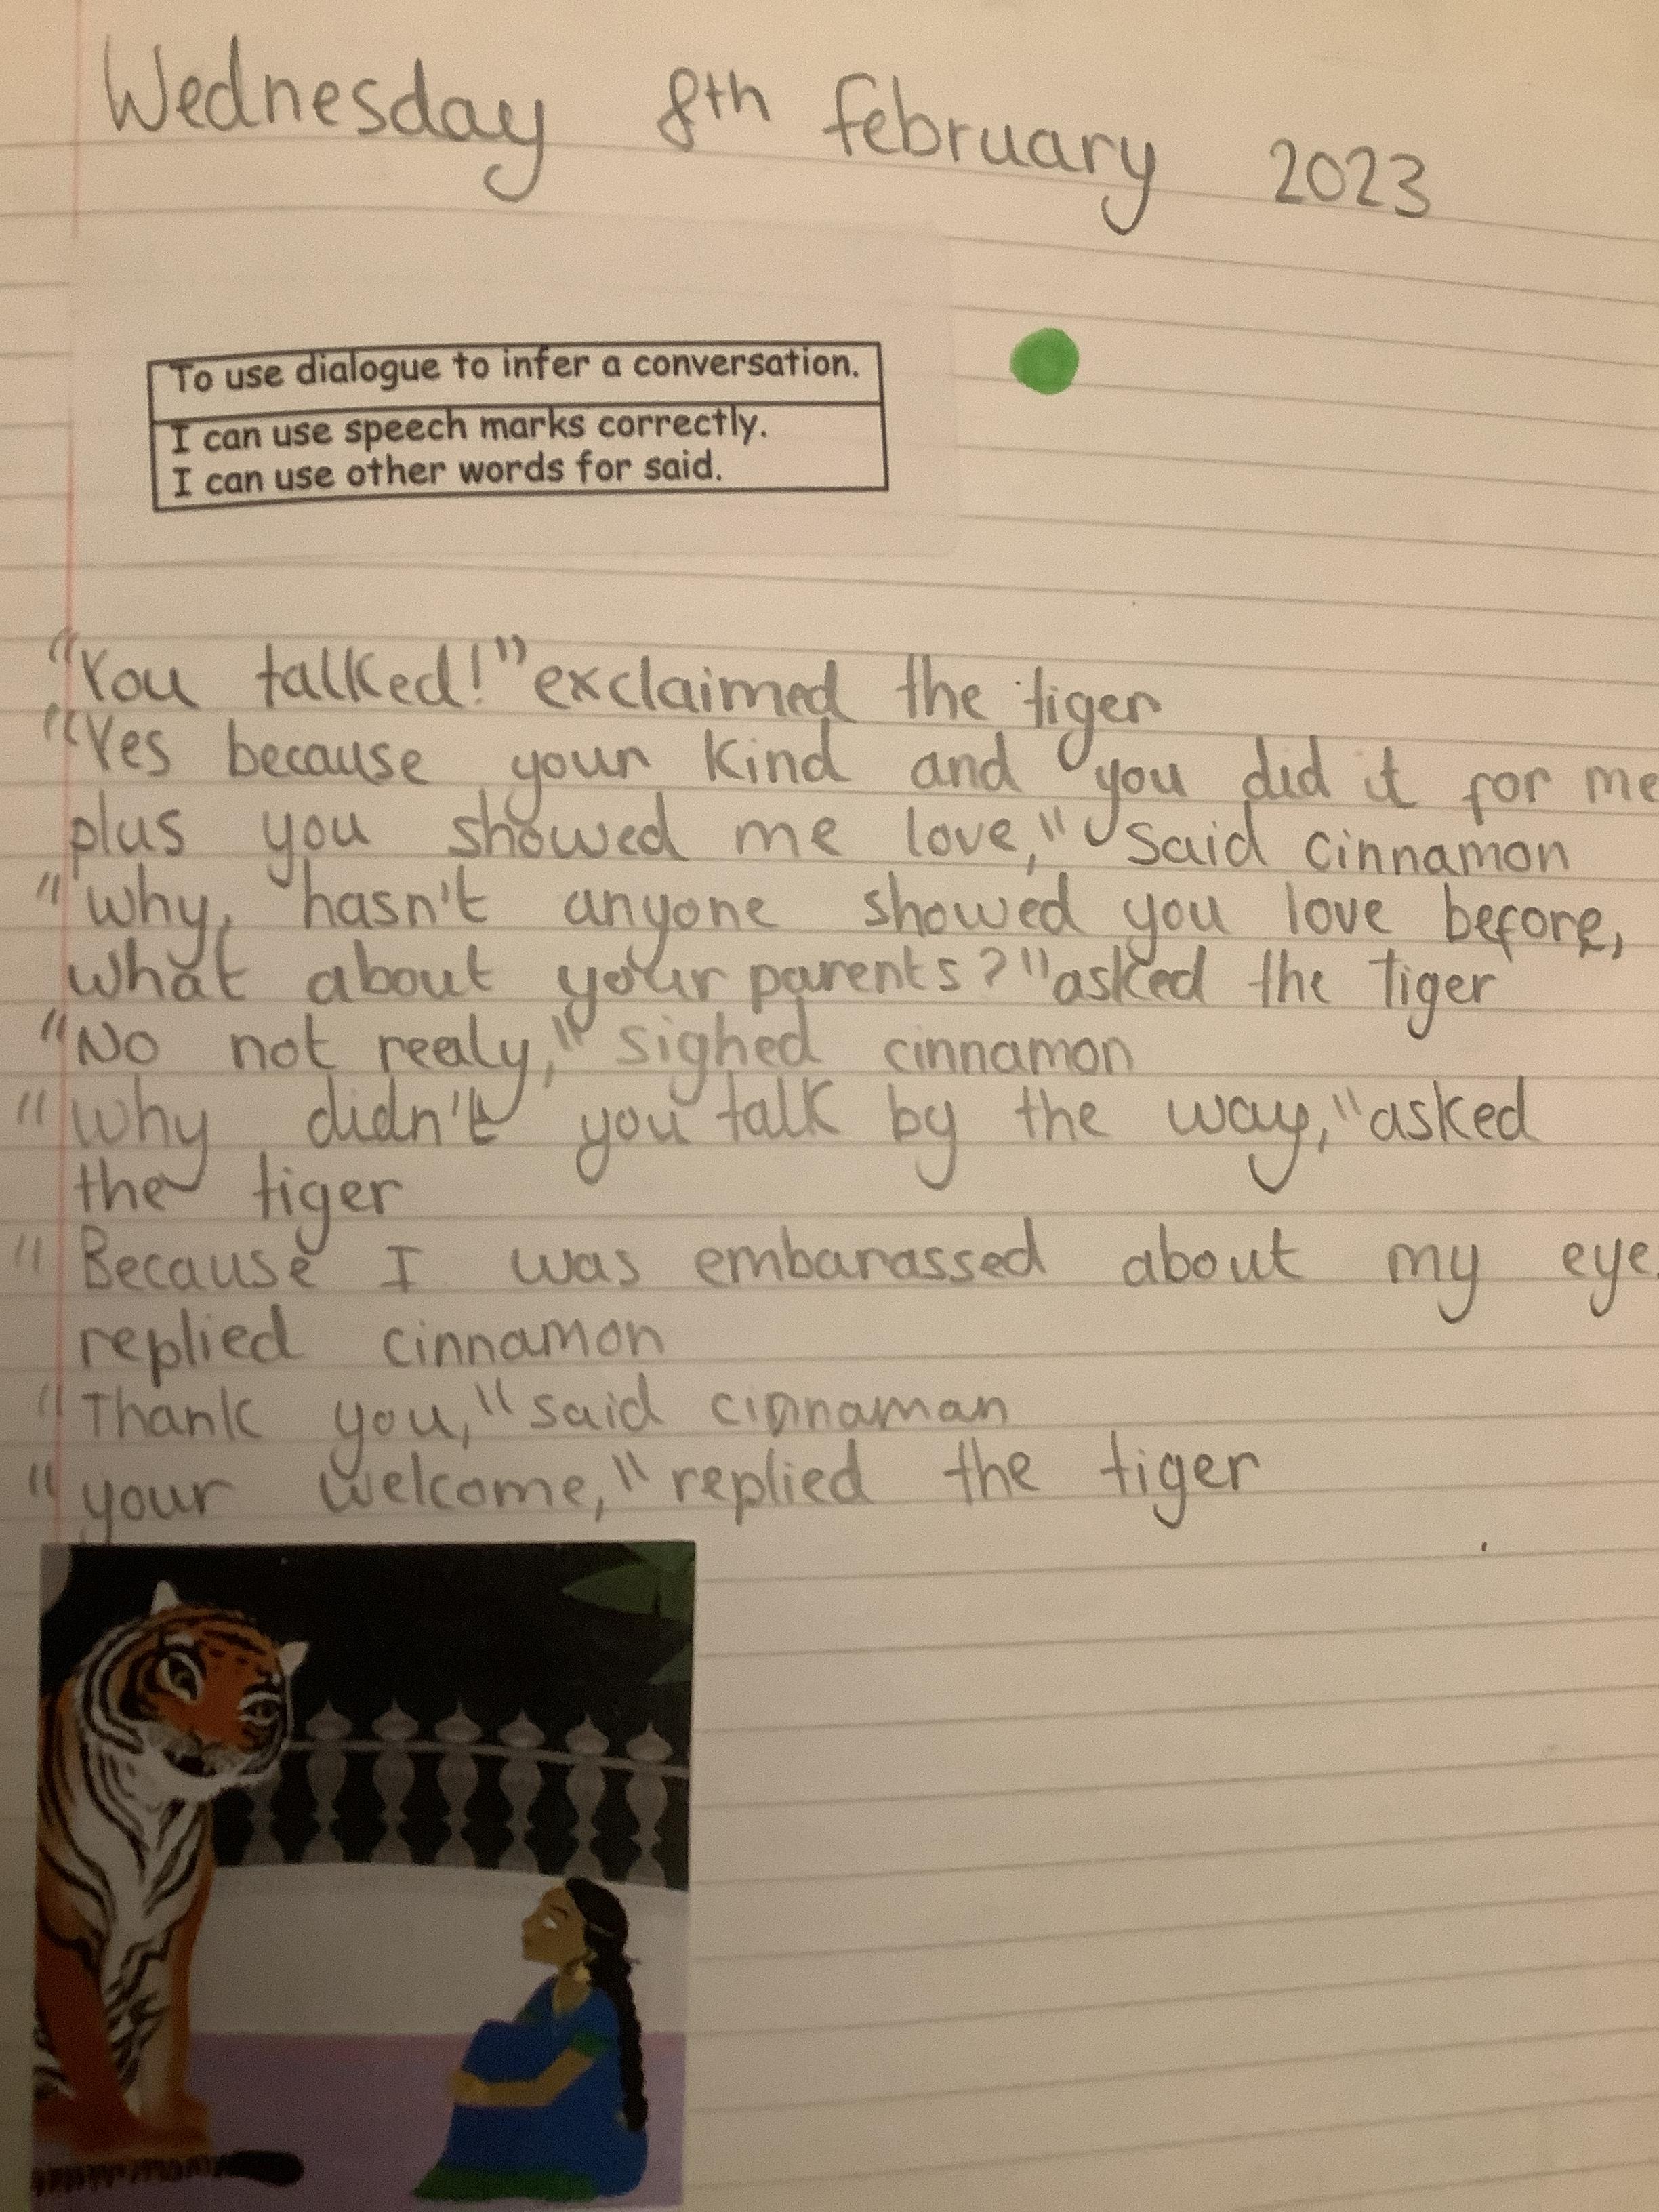 Wednesday 8th february 2023
To use dialogue to infer a conversation.
I can use speech marks correctly.
I can use other words for said.
"You talked!" exclaimed the tiger
"Yes because your kind and you did it for me
plus you showed me love," said cinnamon
"why, hasn't anyone showed you love before,
what about your parents?" asked the tiger
"No not realy," sighed cinnamon
"why didn't you talk by the way," asked
the tiger
"Because I was embarassed about my eye
replied cinnamon
"Thank you," said cinnaman
"your welcome," replied the tiger